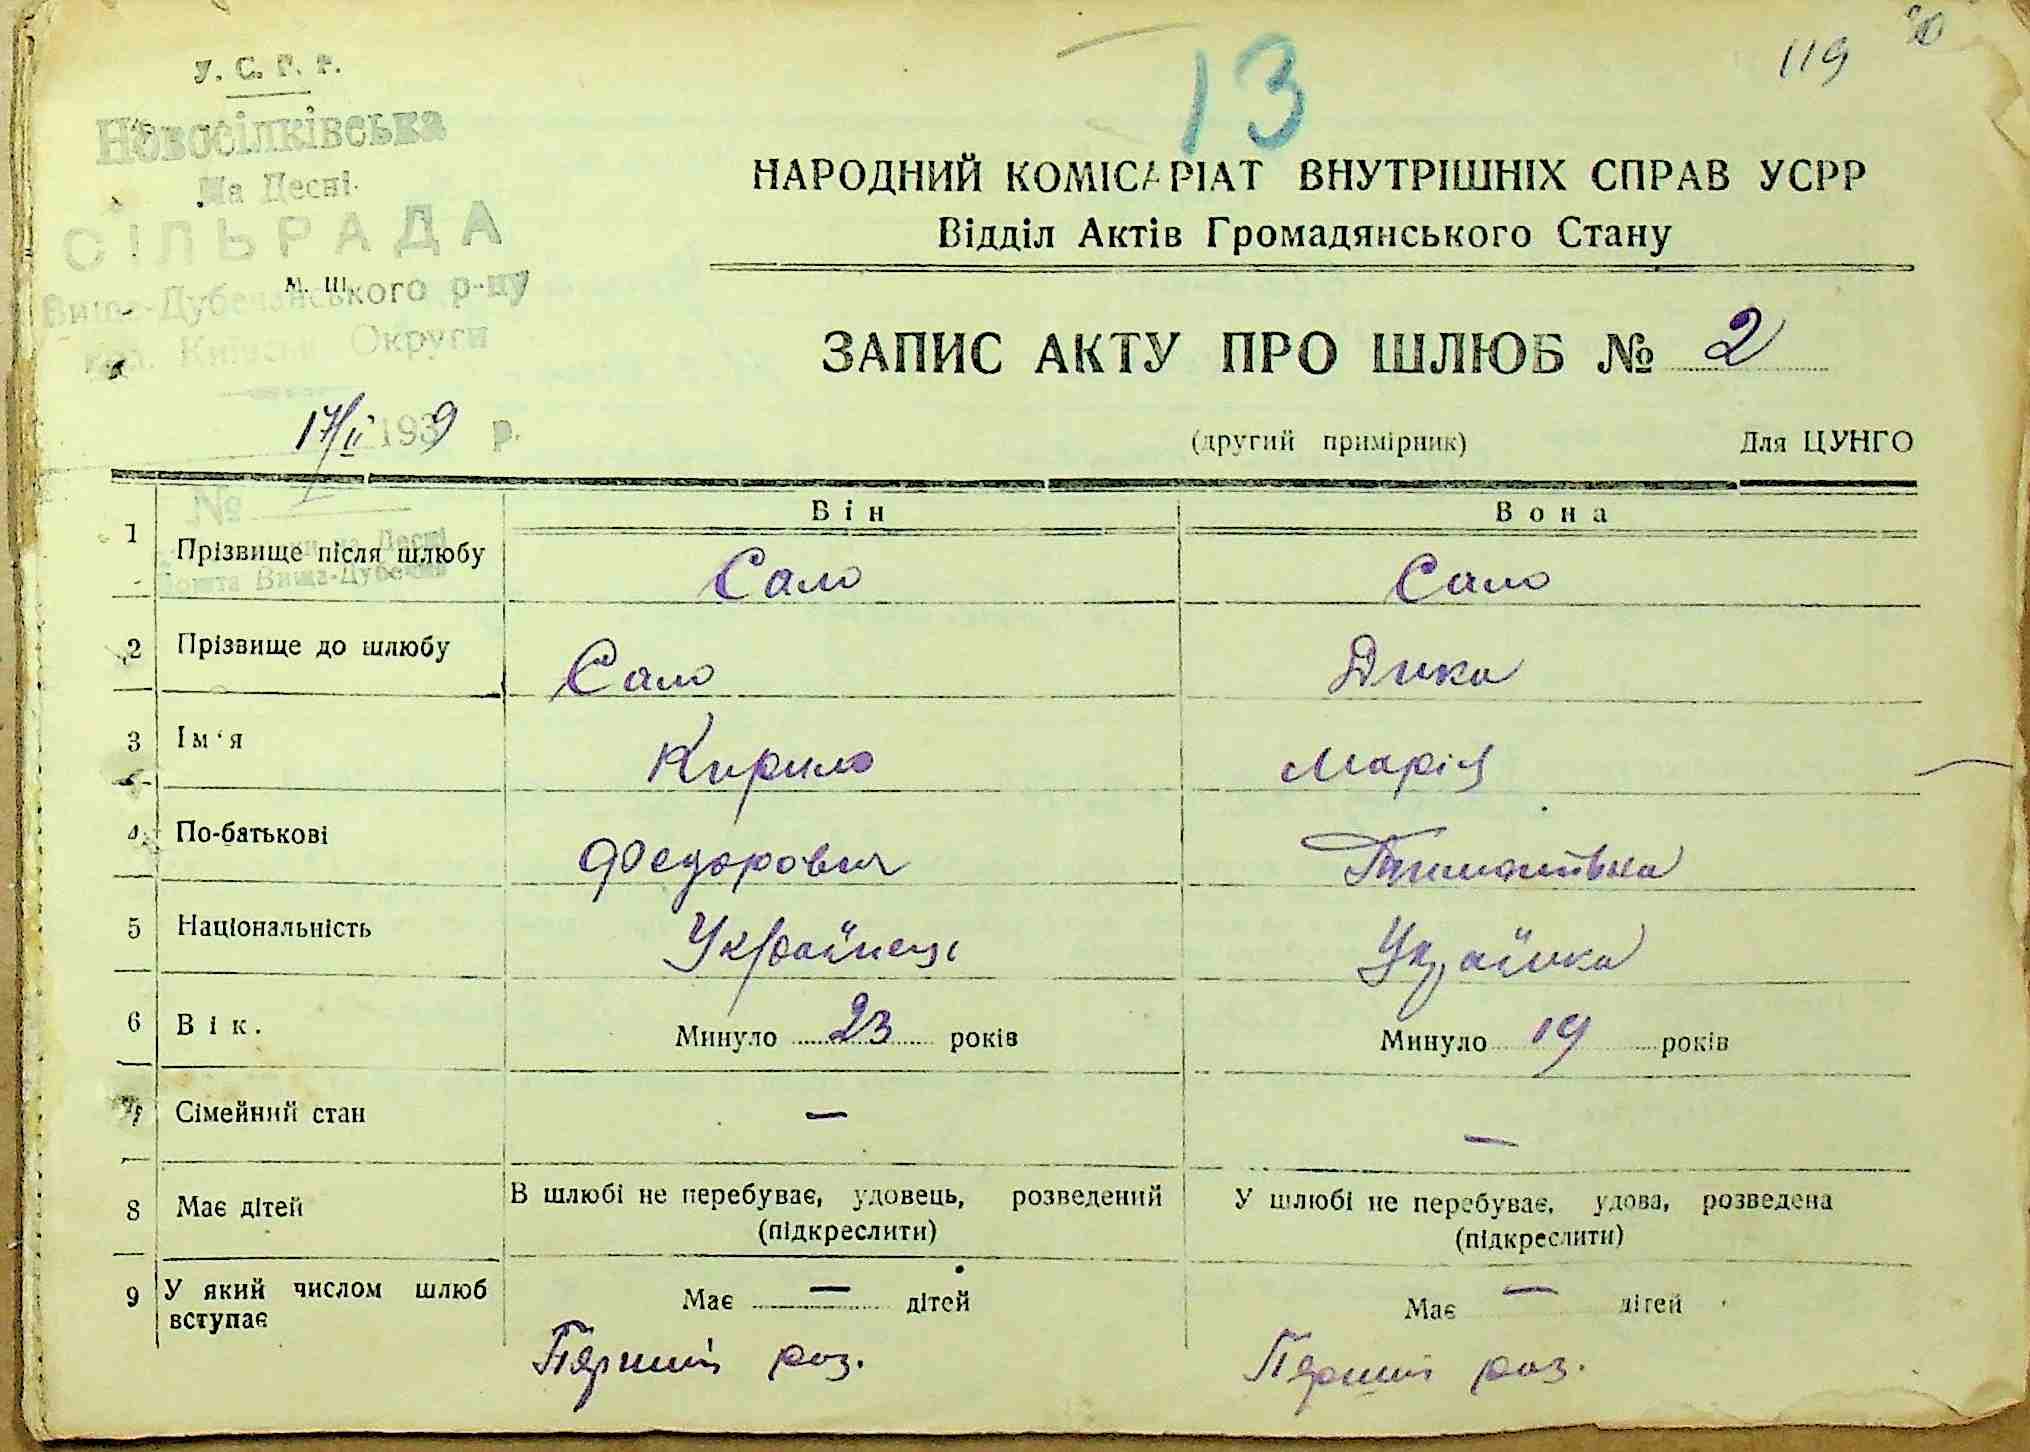 13
119
У. С. Р. Р.
Новосілківська
На Десні
СІЛЬРАДА
м. ш.
Вища-Дубечанського р-ну
Київськ Округи
17/II 1939 р.
№
НАРОДНИЙ КОМІСАРІАТ ВНУТРІШНІХ СПРАВ УСРР
Відділ Актів Громадянського Стану
ЗАПИС АКТУ ПРО ШЛЮБ № 2
(другий примірник) Для ЦУНГО
Він Вона
1 Прізвище після шлюбу Сало Сало
на Десні
пошта Вища-Дубечня
2 Прізвище до шлюбу Сало Дика
3 Ім'я Кирило Марія
4 По-батькові Федорович Тимофіївна
5 Національність Українець Українка
6 Вік. Минуло 23 років Минуло 19 років
7 Сімейний стан — —
8 Має дітей В шлюбі не перебуває, удовець, розведений У шлюбі не перебуває, удова, розведена
(підкреслити) (підкреслити)
9 У який числом шлюб вступає Має — дітей Має — дітей
Перший раз. Перший раз.